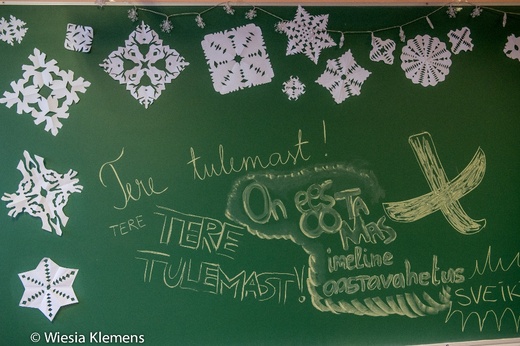 Tere tulemast!
TERE
TERE
TULEMAST!
On ees
OOTA
MAS
imeline
aastavahetus
SVEIK
© Wiesia Klemens